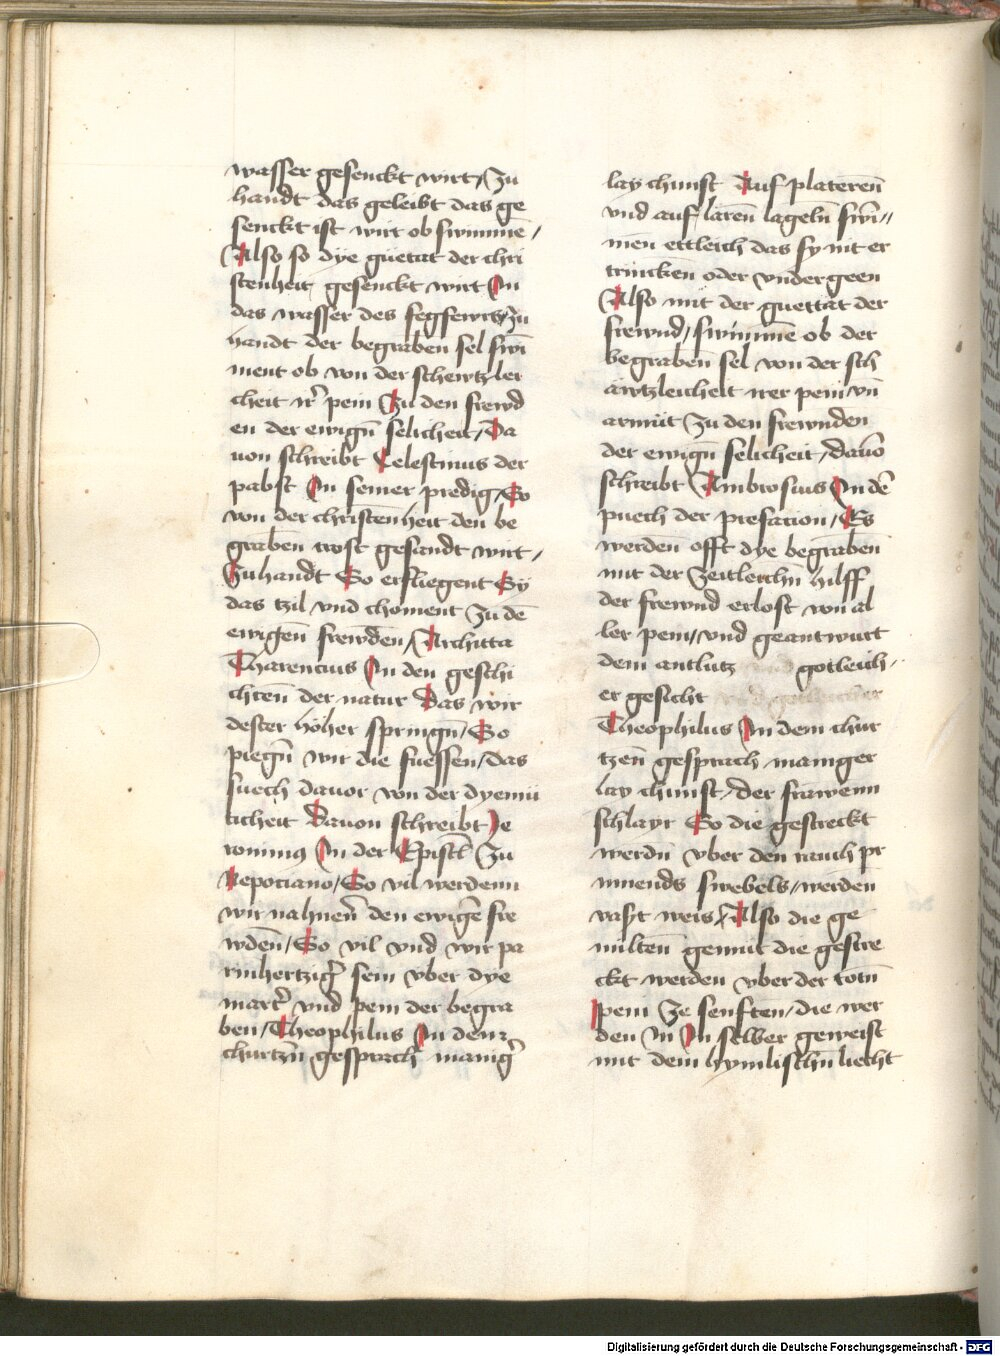 wasser gesenckt wirt / Zu
handt das geleibt das ge
senckt ist wirt ob swimme͂ /
Also so dye guetat der chri
stenheit gesenckt wirt In
das wasser des fegfewrs / Zu
handt der begraben sel swi͂
ment ob von der schertzler
cheit ir͛ pein Zu den frewd
en der ewign̄ selicheit / Da
von schreibt Celestinus der
pabst In seiner predig / So
von der christenheit den be
graben trost gesandt wirt /
Zuhandt So erfliegent Sy
das tzil vnd choment Zu de͂
ewigen frewden / Architta
Tharencius In den geschi
chten der natur Das wir
dester höher springn̄ / So
piegn̄ wir die fuessen / das
suech dauor von der dyemu
ticheit Dauon schreibt Je
ronimus In der Epistl̄ Zu
Nepociano / So vil werdenn
wir nahnen͛ den ewige͂ fre
wden / So vil vnd wir pa
rmhertzig͛ sein vber dye
mart͛ vnd pein der begra
ben / Theophilus In dem
churtzn̄ gesprach manig͛
lay chunst Auf plateren̄
vnd auf laren̄ lageln̄ swi͂ //
men ettleich das sy nit er
trincken oder vndergeen
Also mit der guettat der
frewnd / swimme͂ ob der
begraben̄ sel von der sch
ärtzleicheit irer pein vn̄
armüt Zu den frewnden
der ewign̄ selicheit / dauo͂
schreibt Ambrosius In de͂
puech der prefacion / Es
werden offt dye begraben̄
mit der Zeitleichn̄ hilff
der frewnd erlost von al
ler pein / vnd geantwurt
dem antlutz gotleich -
er gesicht
Theophilus In dem chur
tzen̄ gesprach maniger
lay chunst / der frawenn
schlayr So die gestreckt
werdn̄ vber den rauch pr
innends swebels / werden
vasst weis / Also die ge
milten gemüt die gestre
ckt werden vber der totn̄
pein Ze senften / die wer
den In In selber geweist
mit dem hymlischn̄ liecht
Digitalisierung gefördert durch die Deutsche Forschungsgemeinschaft - DFG